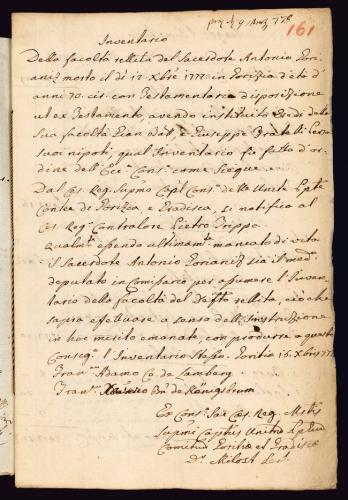 161
Inventario
Della facoltà relita del Sacerdote Antonio Gori-
aniz morto il dì 12 Xbre 1777 in Gorizia d'età d'
anni 70. cir. con Testamentaria disposizione
ut ex Testamento, avendo instituito Eredi della
Sua facoltà Gian Batt. e Giuseppe Fratelli
suoi nipoti, qual Inventario fu fatto d'or-
dine dell' Ecc. Cons. come Siegue.
Dal Ces. Reg. Supmo Capl Cons. delle Unite
Contee di Gorizia, e Gradisca, si notifica al
Ces. Reg. Controlore Pietro Trippo.
Qualm.t essendo ultimam.t mancato di vita
il Sacerdote Antonio Gorianiz sia il med.
deputato in Comissario per assumere l'Inven-
tario della facoltà del Def.to relita, ciò che
saprà effetuare a senso dell' Instruzione
in hoc merito emanate, con produrre a questo
Conseg. l'Inventario stesso. Gorizia 16. Xbris 177
Fran. Adamo Co. de Lamberg.
Fran. de Königsbrun
Ex Cons. Sac. Ces. Reg. Mttis
Supmi Captus Unitor
Comituu Goritiae et Gradiscae
Dr. Milost